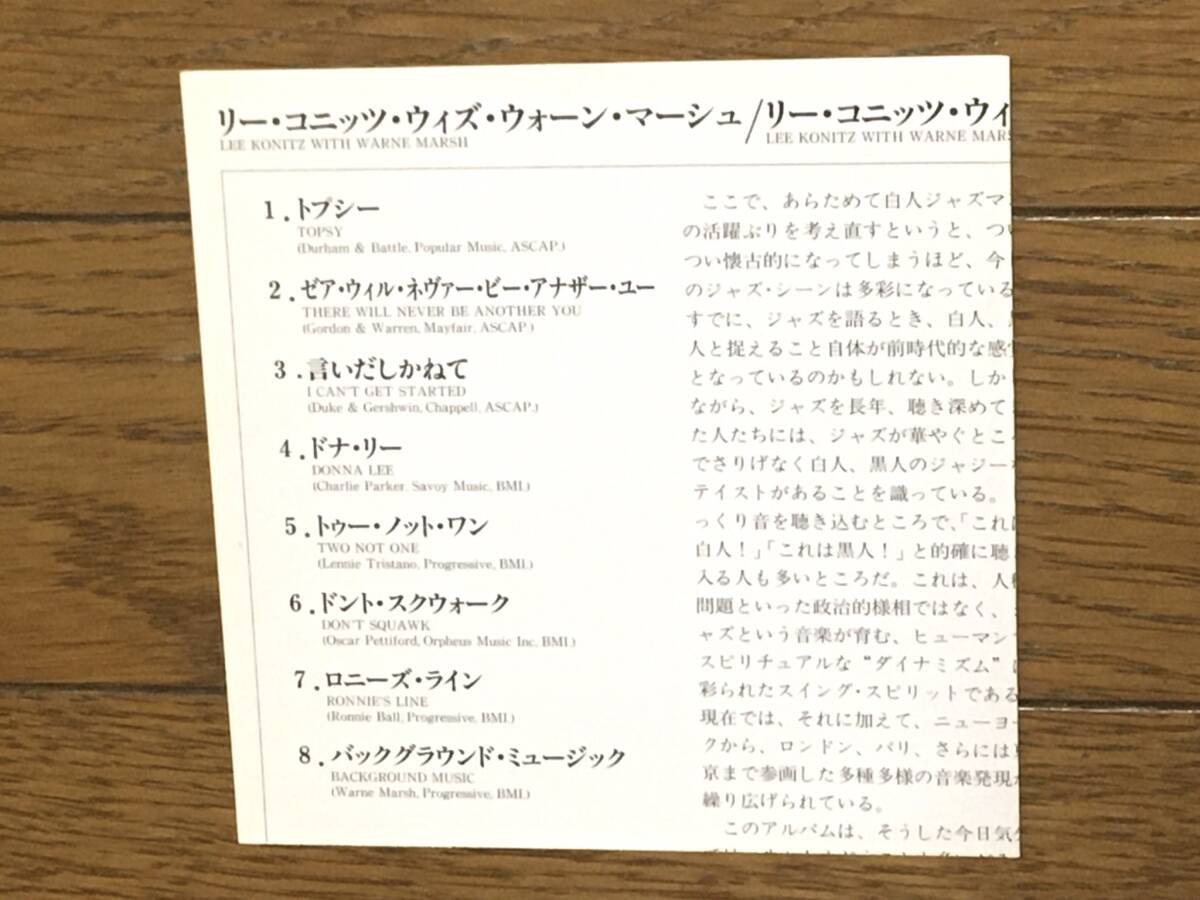 リー・コニッツ・ウィズ・ウォーン・マーシュ/リー・コニッツ・ウィ
LEE KONITZ WITH WARNE MARSH
LEE KONITZ WITH WARNE MARS
1.トプシー
TOPSY
(Durham & Battle, Popular Music, ASCAP.)
2.ゼア・ウィル・ネヴァー・ビー・アナザー・ユー
THERE WILL NEVER BE ANOTHER YOU
(Gordon & Warren, Mayfair, ASCAP.)
3.言いだしかねて
I CAN'T GET STARTED
(Duke & Gershwin, Chappell, ASCAP.)
4.ドナ・リー
DONNA LEE
(Charlie Parker, Savoy Music, BMI.)
5.トゥー・ノット・ワン
TWO NOT ONE
(Lennie Tristano, Progressive, BMI.)
6.ドント・スクウォーク
DON'T SQUAWK
(Oscar Pettiford, Orpheus Music Inc, BMI.)
7.ロニーズ・ライン
RONNIE'S LINE
(Ronnie Ball, Progressive, BMI.)
8.バックグラウンド・ミュージック
BACKGROUND MUSIC
(Warne Marsh, Progressive, BMI.)
ここで、あらためて白人ジャズマ
の活躍ぶりを考え直すというと、つい
つい懐古的になってしまうほど、今
のジャズ・シーンは多彩になっている
すでに、ジャズを語るとき、白人、
人と捉えること自体が前時代的な感
となっているのかもしれない。しか
ながら、ジャズを長年、聴き深めて
た人たちには、ジャズが華やぐとこ
でさりげなく白人、黒人のジャジー
テイストがあることを識っている。
っくり音を聴き込むところで、「これ
白人!」「これは黒人!」と的確に聴
入る人も多いところだ。これは、人
問題といった政治的様相ではなく、
ャズという音楽が育む、ヒューマン
スピリチュアルな“ダイナミズム”
彩られたスイング・スピリットである
現在では、それに加えて、ニューヨー
クから、ロンドン、パリ、さらには
京まで参画した多種多様の音楽発現
繰り広げられている。
このアルバムは、そうした今日気